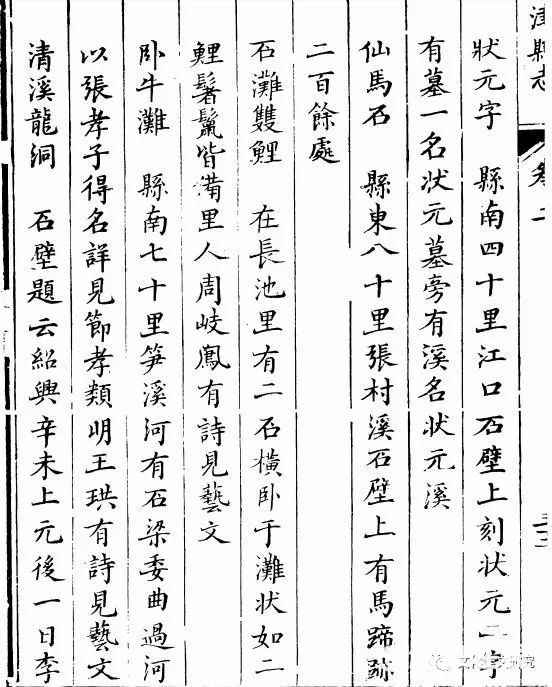 津縣志
卷二
狀元字　縣南四十里江口石壁上刻狀元二字
有墓一名狀元墓旁有溪名狀元溪
仙馬石　縣東八十里張村溪石壁上有馬蹄跡
二百餘處
石灘雙鯉　在長池里有二石橫卧于灘狀如二
鯉鬐鬣皆備里人周岐鳳有詩見藝文
卧牛灘　縣南七十里笋溪河有石梁委曲過河
以張孝子得名詳見節孝類明王珙有詩見藝文
清溪龍洞　石壁題云紹興辛未上元後一日李